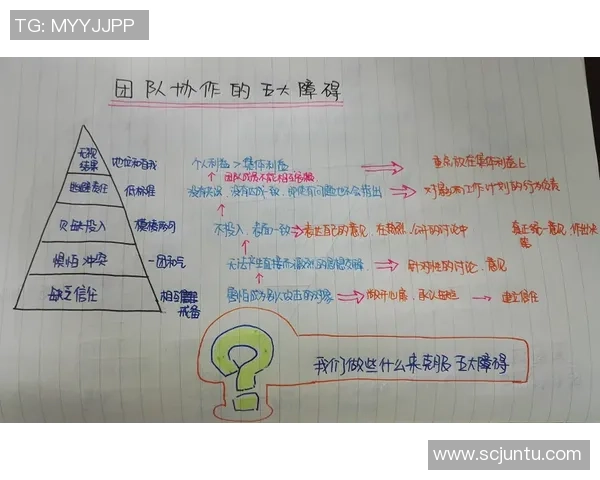 TG: MYYJJPP
团队协作的五大障碍
无视结果 地位和自我 个人利益 > 集体利益 重点放在集体利益上
团队成员不能相互
逃避责任 低标准 没有 没有 一致,即使有问题也不会指出 对 工作计划的
欠缺投入 模棱两可 不投入,表面一致 表达自己的意见,在 公开的讨论中 真正统一意见,作出决策
惧怕冲突 一团和气 无法产生直接而激烈的思想交锋 针对性的讨论、意见
缺乏信任 相互 戒备 害怕成为别人攻击的对象 敞开心扉,承认 建立信任
?
我们做些什么来克服五大障碍
www.scjuntu.com